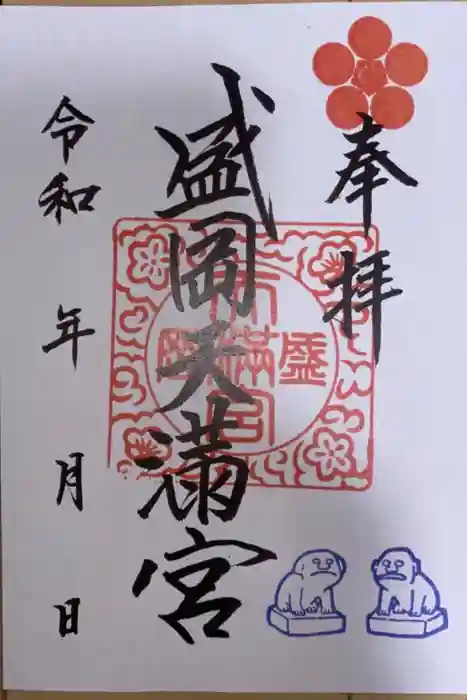 奉拝
盛岡天満宮
令和 年 月 日
盛岡天満宮